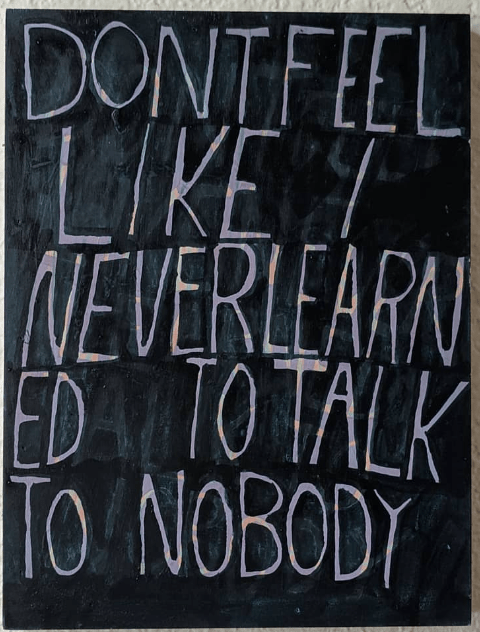 DONT FEEL
LIKE I
NEVER LEARN
ED TO TALK
TO NOBODY